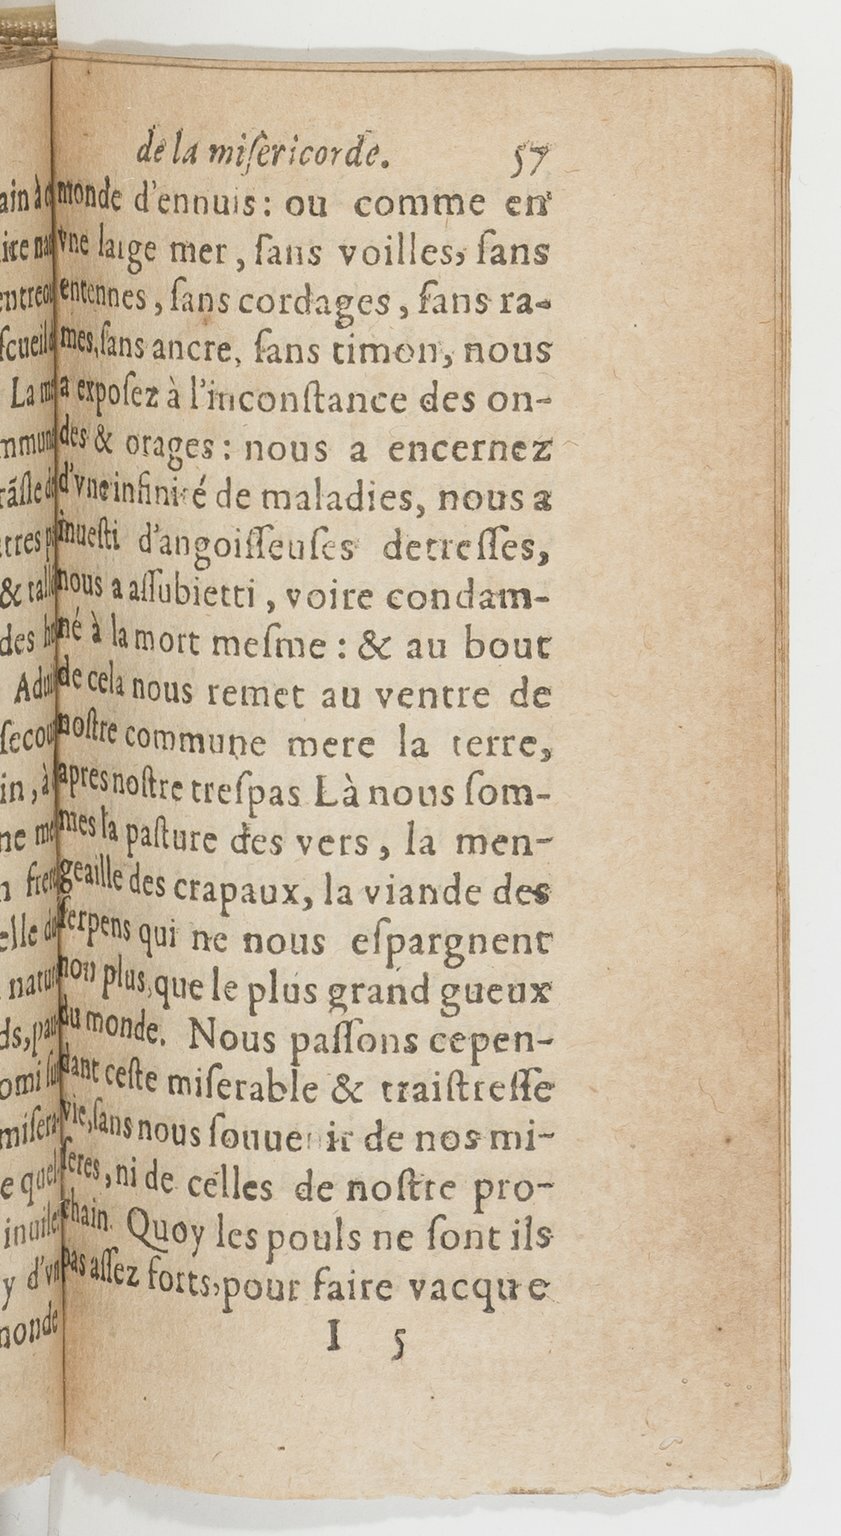 de la miſericorde. 57
monde d'ennuis: ou comme en
vne large mer, ſans voilles, ſans
entennes, ſans cordages, ſans ra-
mes, ſans ancre, ſans timon, nous
a expoſez à l'inconſtance des on-
des & orages: nous a encernez
d'vne infinité de maladies, nous a
inueſti d'angoiſſeuſes detreſſes,
nous a aſſubietti, voire condam-
né à la mort meſme: & au bout
de cela nous remet au ventre de
noſtre commune mere la terre,
apres noſtre treſpas Là nous ſom-
mes la paſture des vers, la men-
geaille des crapaux, la viande des
ſerpens qui ne nous eſpargnent
non plus, que le plus grand gueux
du monde. Nous paſſons cepen-
dant ceſte miſerable & traiſtreſſe
vie, ſans nous ſouuenir de nos mi-
ſeres, ni de celles de noſtre pro-
chain. Quoy les pouls ne ſont ils
pas aſſez forts, pour faire vacque
I 5